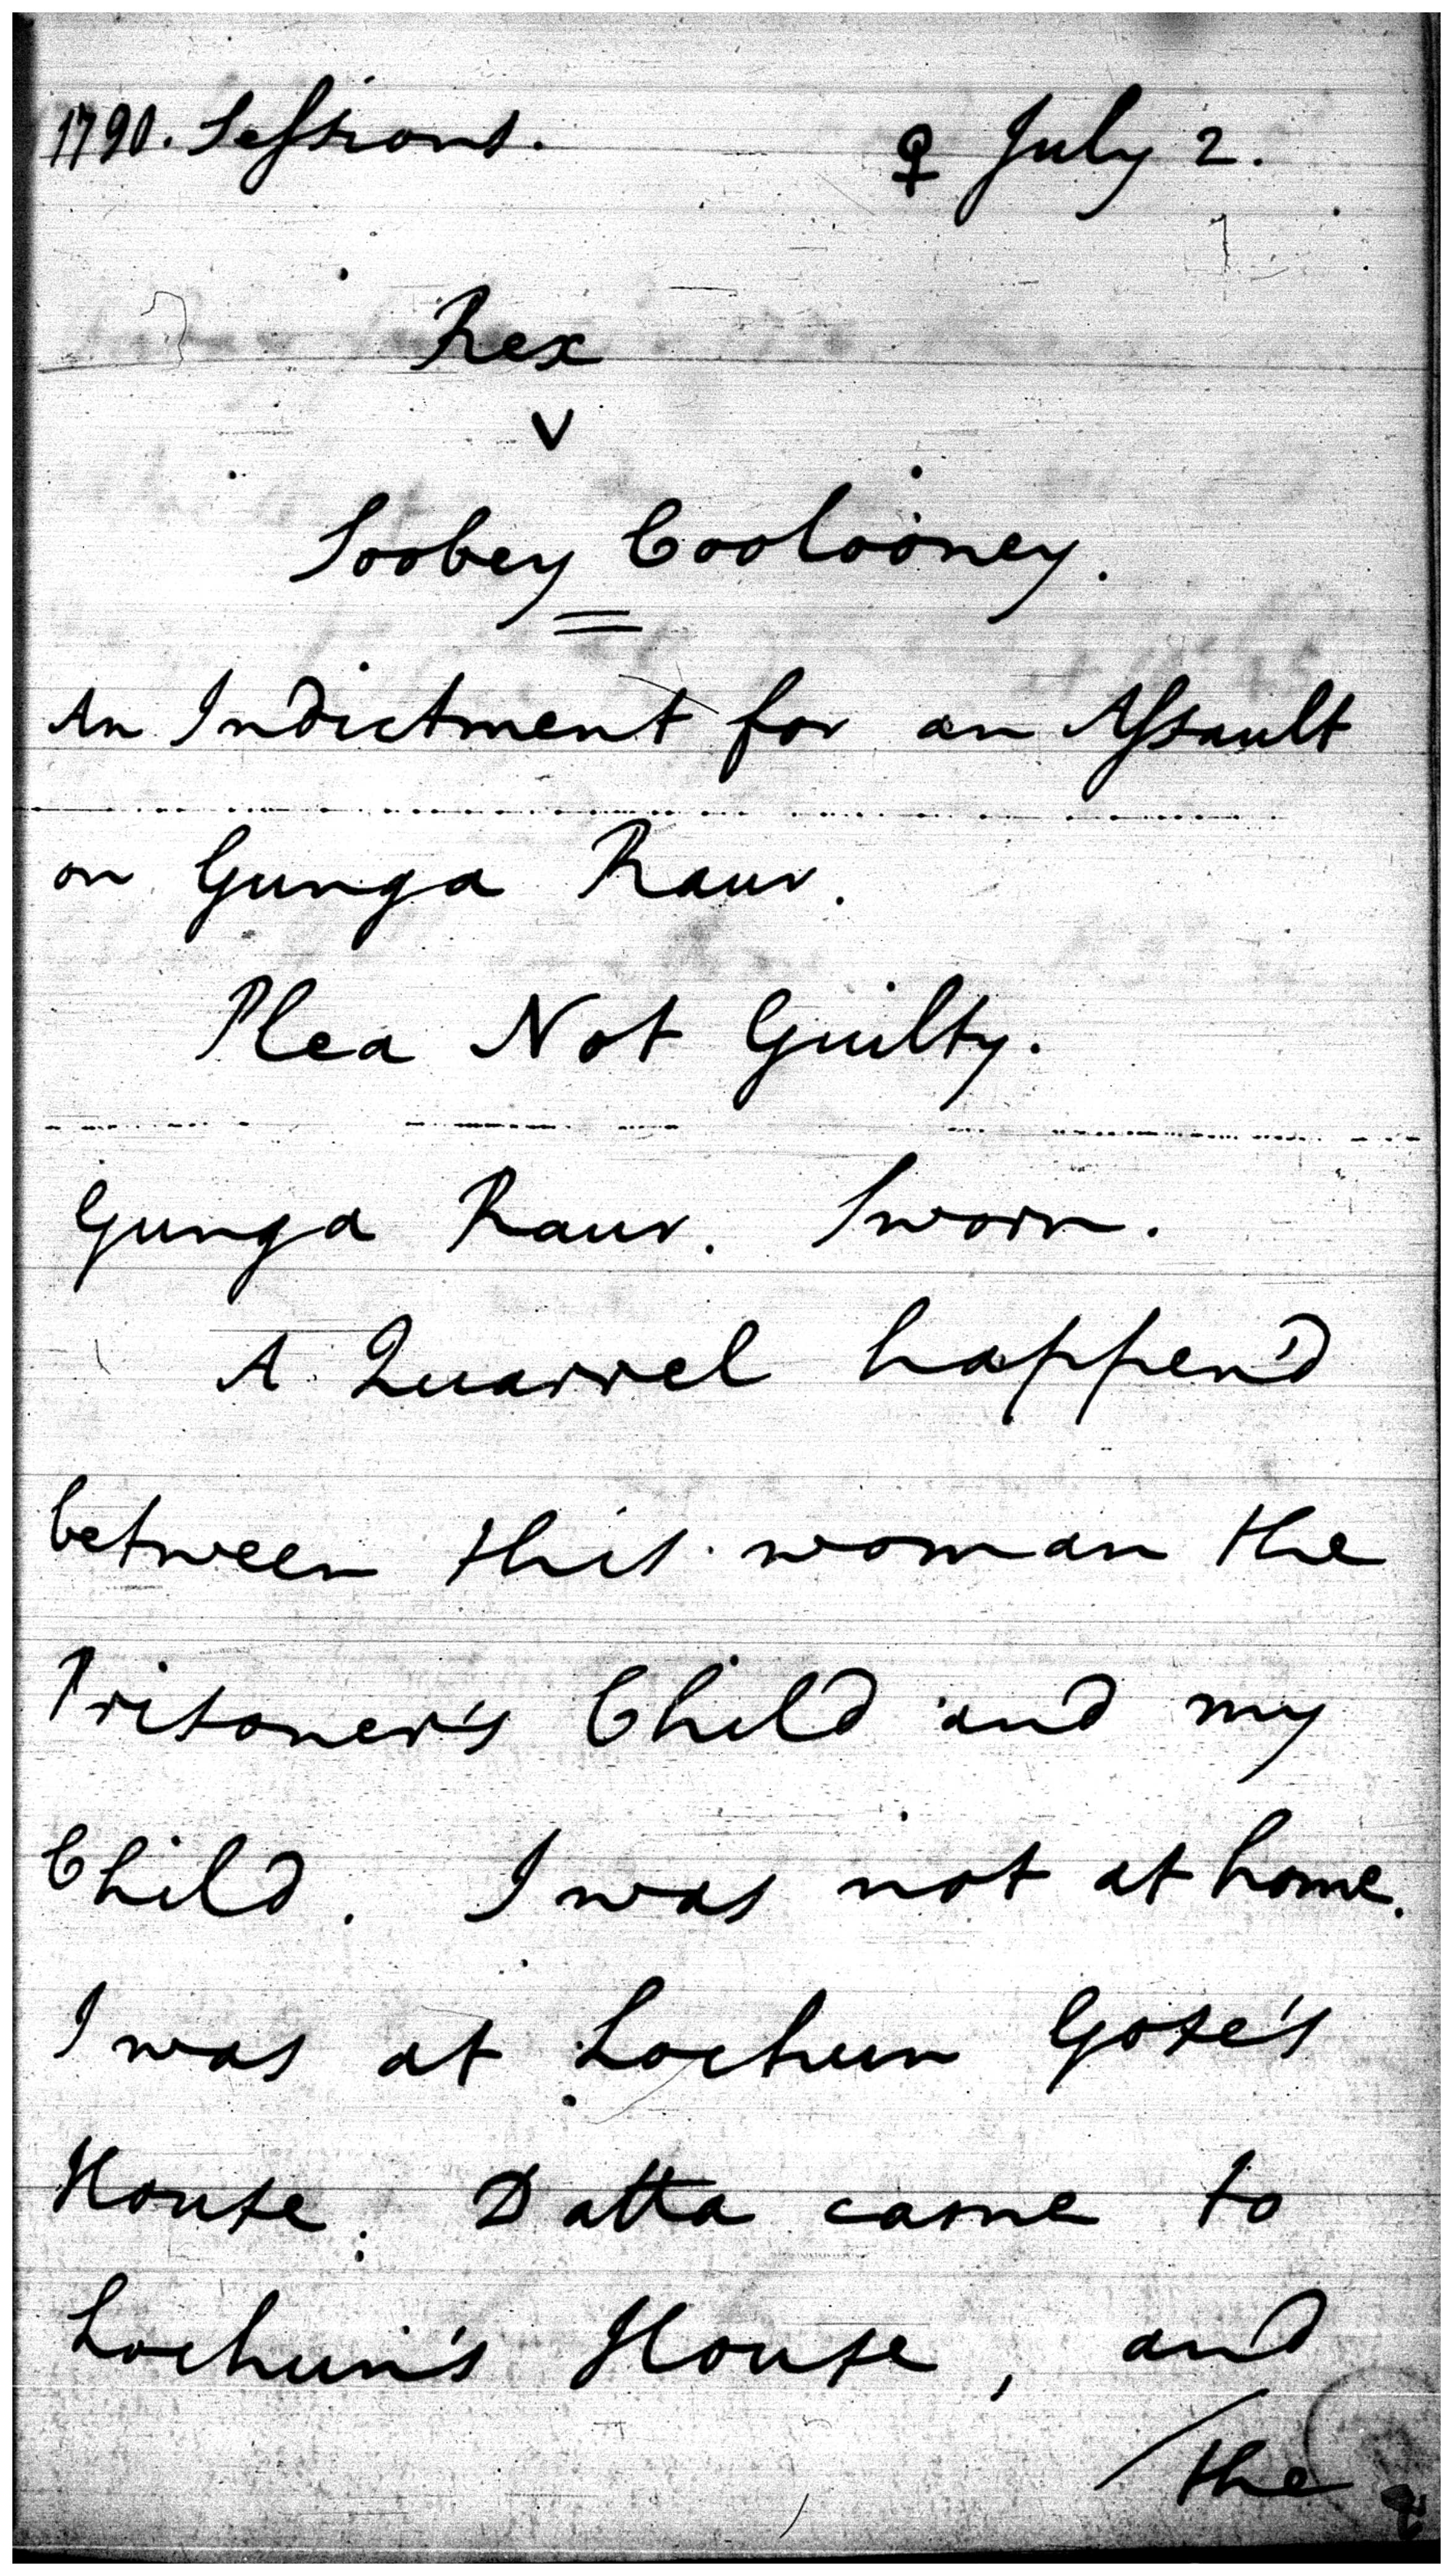 1790. Sessions. ♀ July 2.
Rex
v
Soobey Coolooney.
An Indictment for an Assault
on Gunga Raur.
Plea Not Guilty.
Gunga Raur. Sworn.
A Quarrel happen'd
between this woman the
Prisoner's Child and my
Child. I was not at home.
I was at Lochun Gose's
House. Datta came to
Lochun's House, and
the